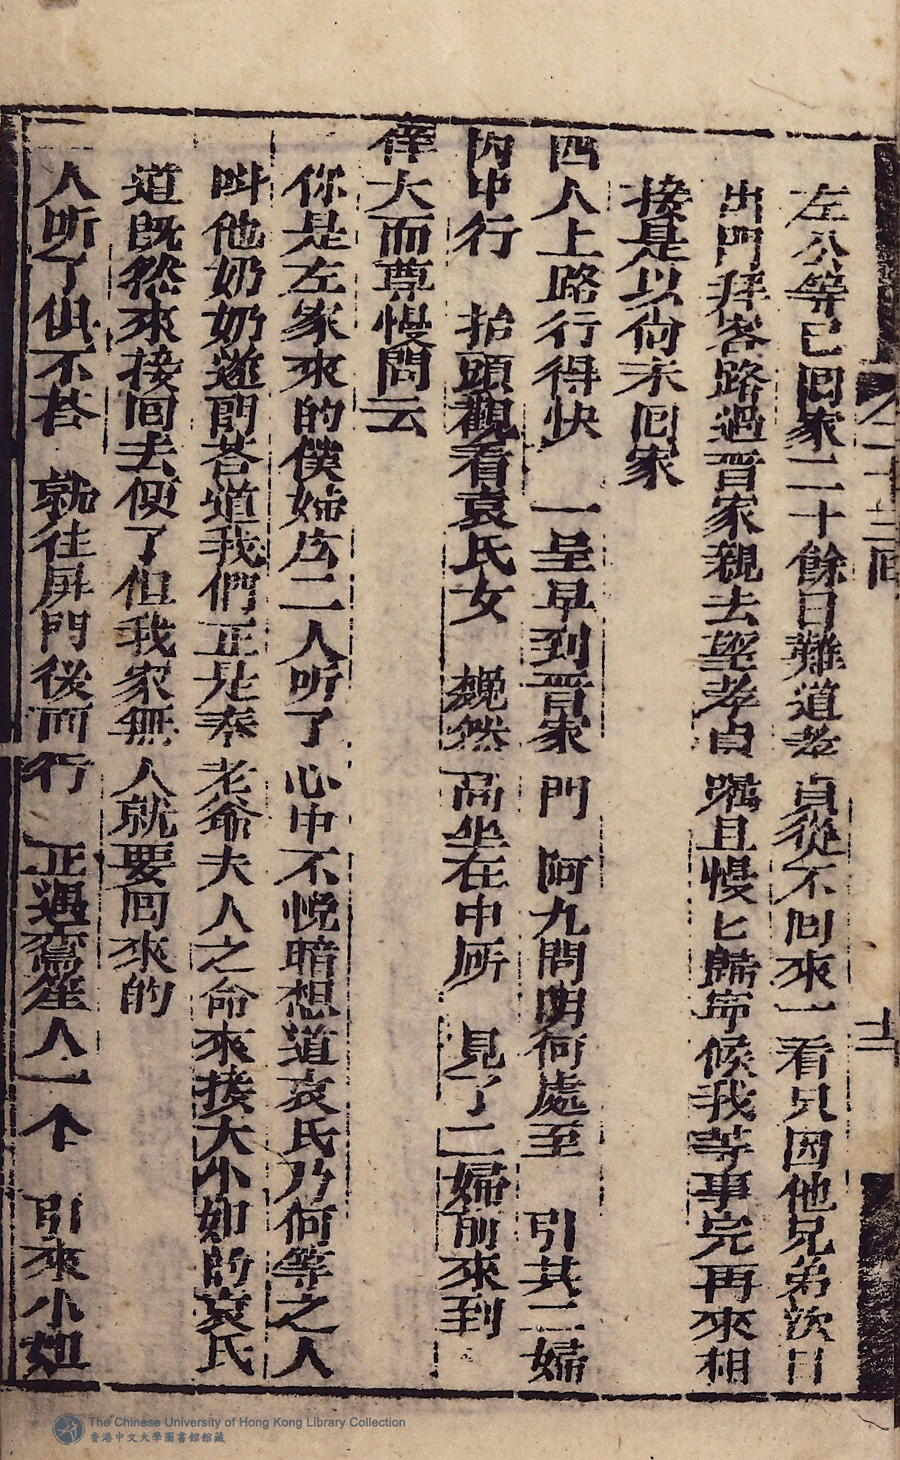 左公等已回家二十餘日難道孝貞從不回來一看只因他兄弟次日
出門拜客路過晋家親去望孝貞囑且慢匕歸寧候我等事完再來相
接是以尚未回家
四人上路行得快 一呈早到晋家門 阿九問明何處至 引其二婦
內中行 抬頭觀看袁氏女 巍然高坐在中所 見了二婦前來到
大而尊慢問云
你是左家來的僕婦広二人听了心中不悦暗想道袁氏乃何等之人
叫他奶奶遂即荅道我們正是奉老爺夫人之命來接大小姐的袁氏
道既然來接回去便了但我家無人就要回來的
二人听了俱不荅 就往屏門後而行 正遇鸞笙人一个 引來小姐
二十三回
十一
The Chinese University of Hong Kong Library Collection
香港中文大學圖書館館藏